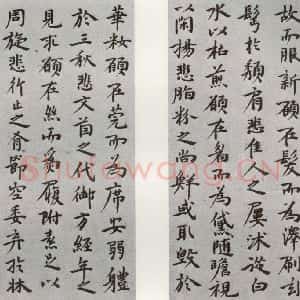 故而服新願在髮而為澤刷玄
鬢於頹肩悲佳人之屢沐從白
水以枯煎願在眉而為黛隨瞻視
以閑揚悲脂粉之尚鮮或取毀於
華粧願在莞而為席安弱體
於三秋悲文茵之代御方經年之
見求願在絲而為履附素足以
周旋悲行止之有節空委棄於牀
Shufawang.CN